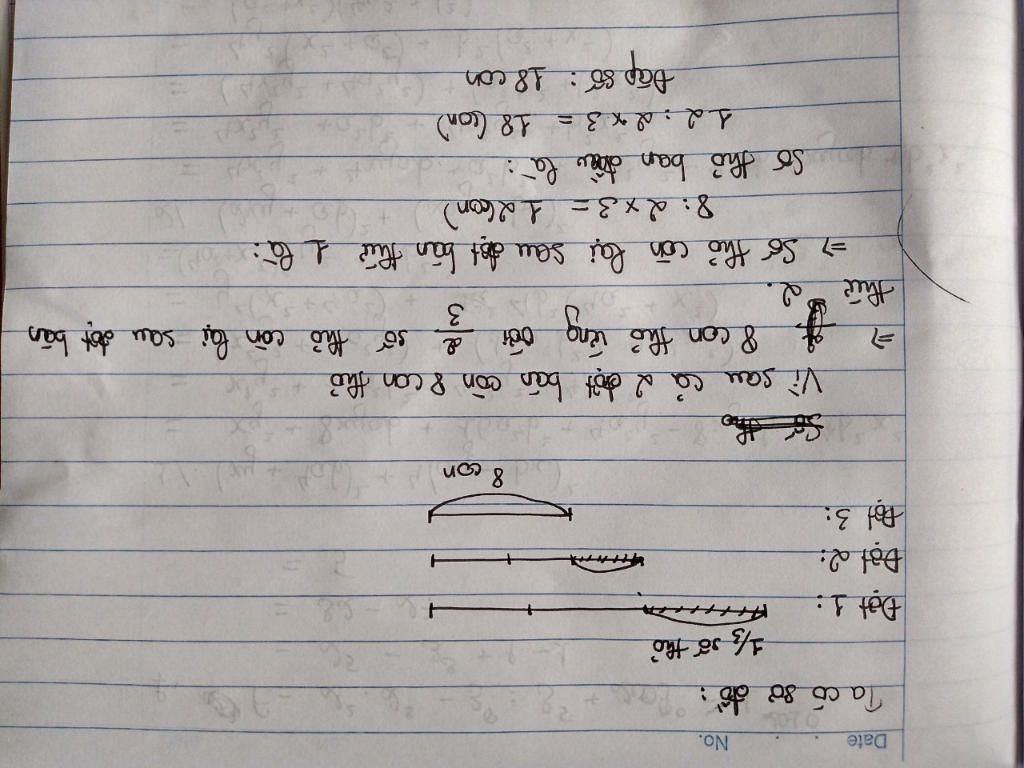 Date No.
Ta có sơ đồ:
1/3 số thỏ
Đợt 1:
Đợt 2:
Đợt 3:
8 con
Vì sau cả 2 đợt bán còn 8 con thỏ
=> 8 con thỏ ứng với 2/3 số thỏ còn lại sau đợt bán
thứ 2.
=> Số thỏ còn lại sau đợt bán thứ 1 là:
8 : 2 x 3 = 12 (con)
Số thỏ ban đầu là:
12 : 2 x 3 = 18 (con)
Đáp số: 18 con